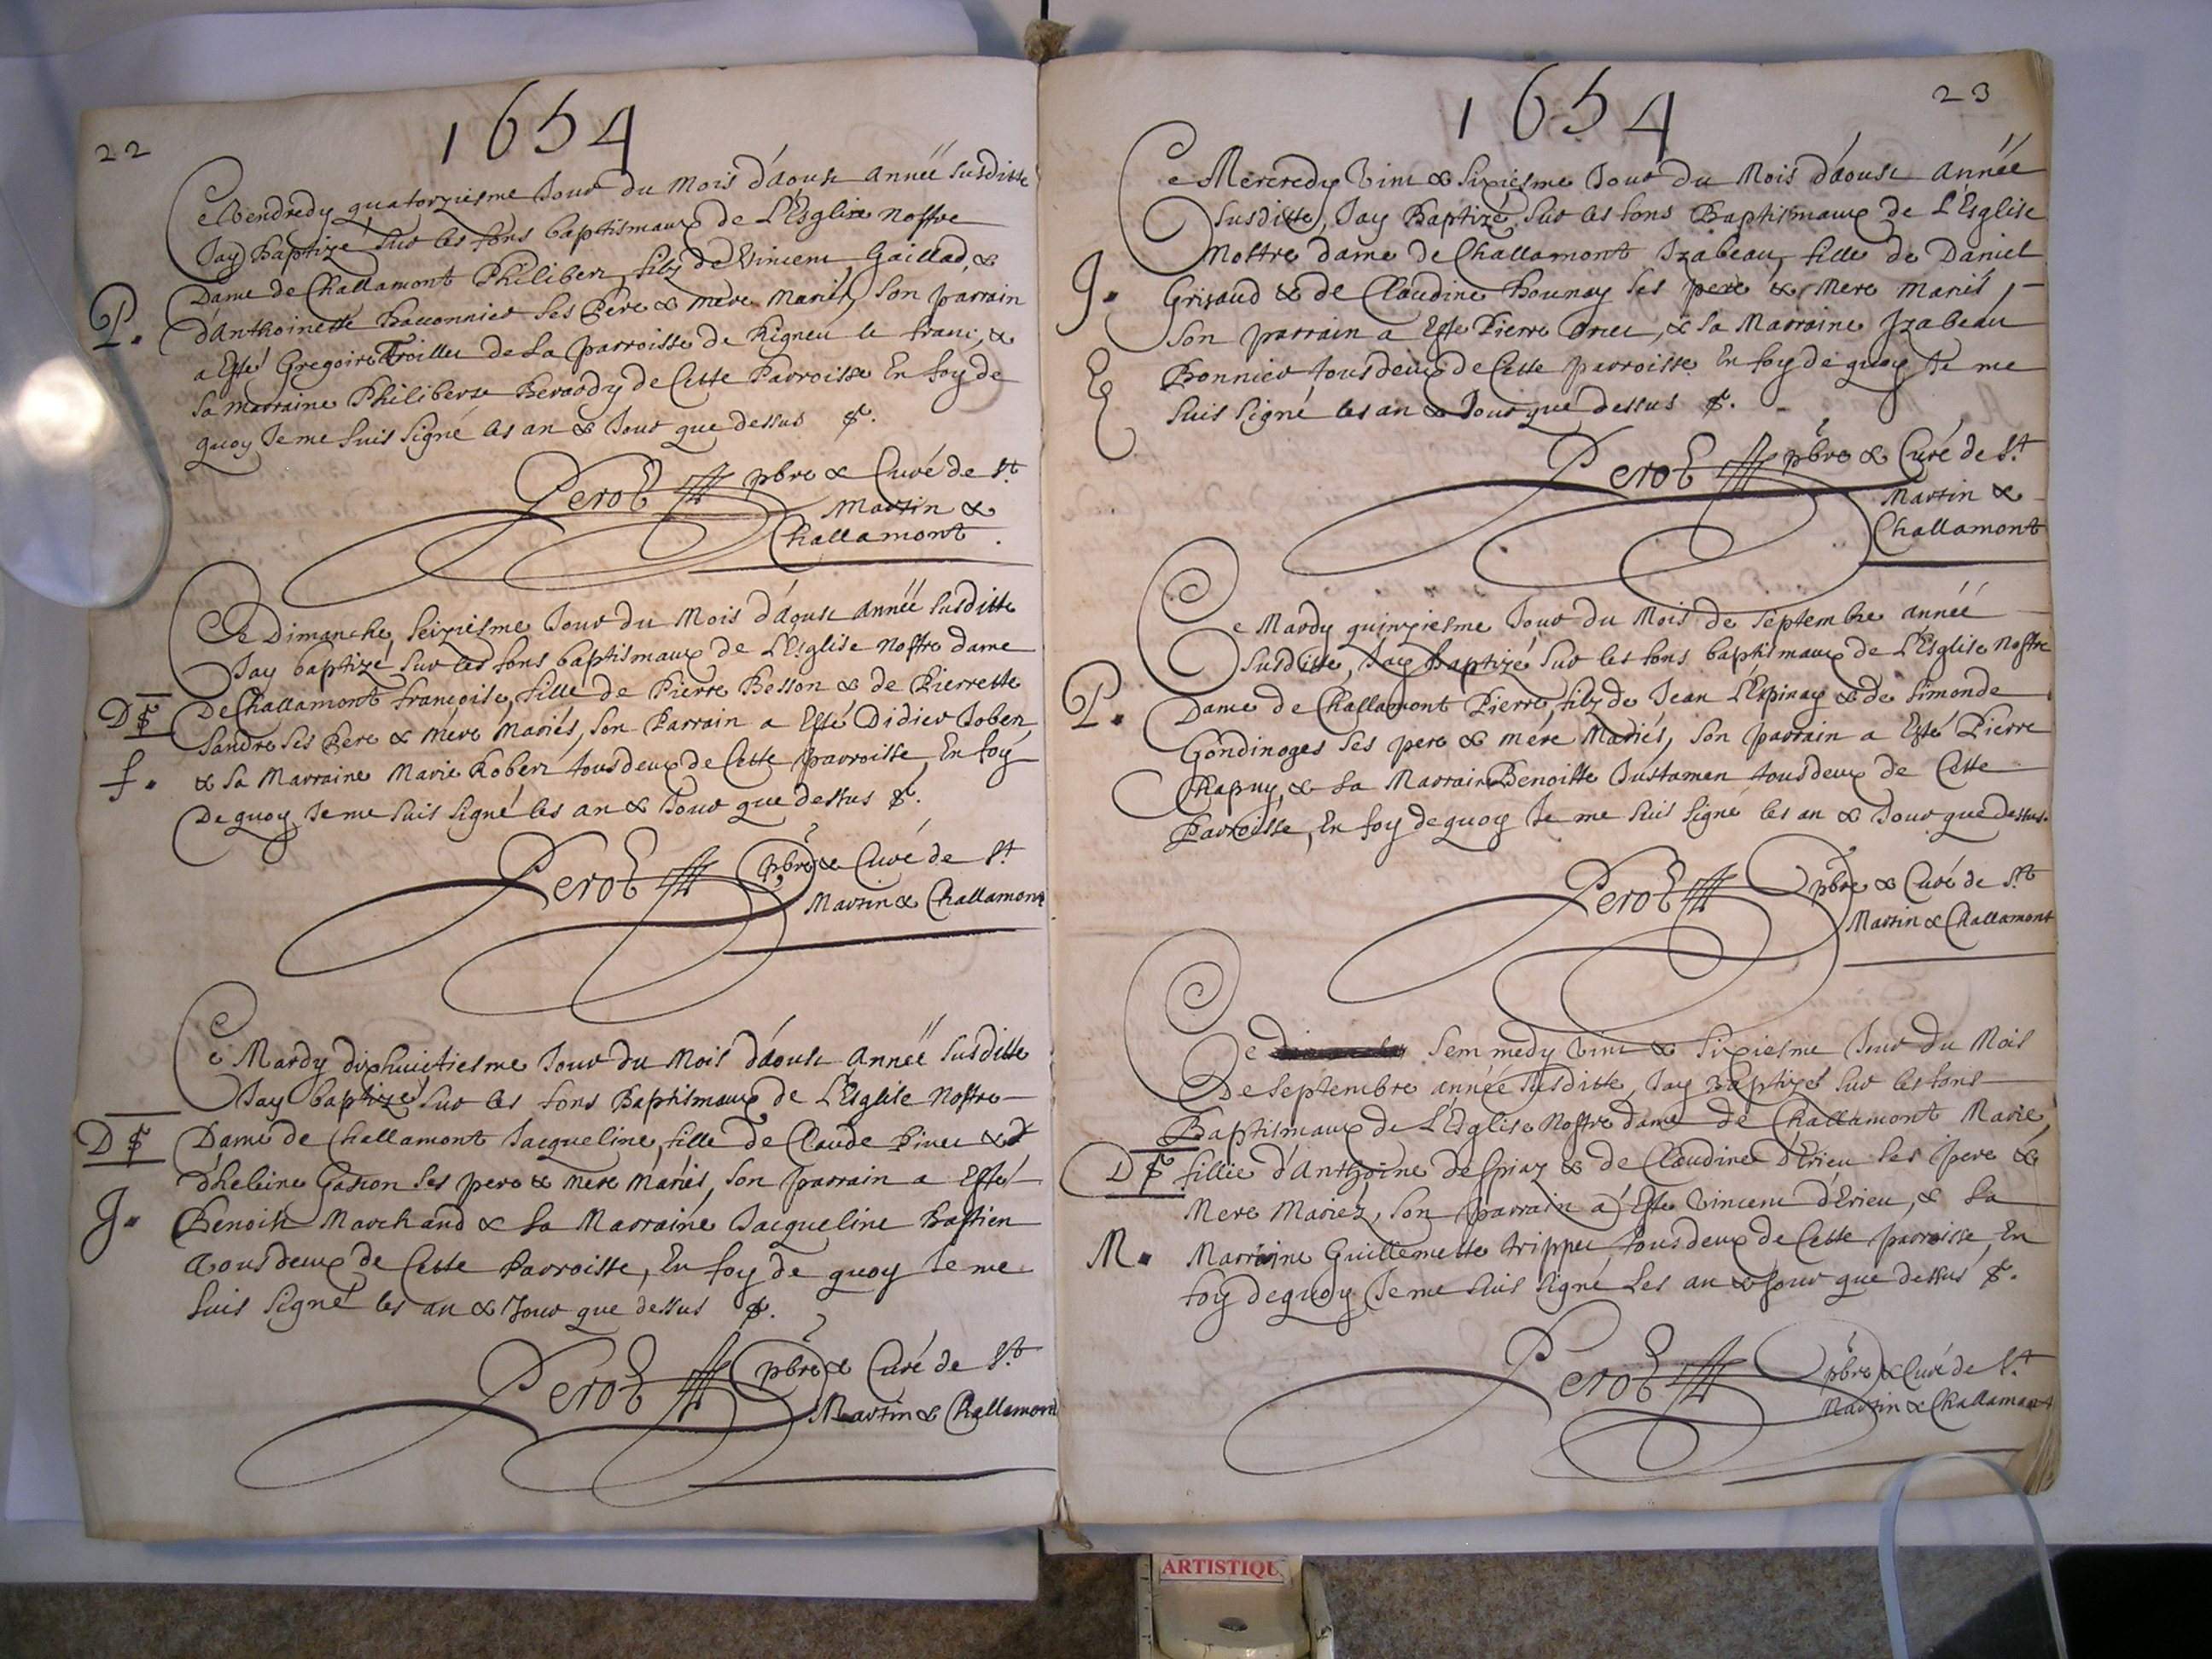 22
1654
Ce Vendredy quatorziesme Jour du Mois d'áoust Année susditte
Jay Baptizé sur les fons baptismaux de L'Esglise nostre
Dame de Challamont Philibert, filz de Vincent Gaillad, &
P.
d'Anthoinette ses Pere & mere Mariés, son parrain
a Esté Gregoire Troillet de la parroisse de Rigneu le franc, &
sa marraine Philiberte Berardy de Cette Parroisse En foy de
quoy Je me suis signé les an & Jour que dessus
Perot pbre & Curé de St
Martin &
Challamont.
Ce Dimanche, seiziesme Jour du Mois d'áoust année susditte
Jay baptizé sur les fons baptismaux de L'Esglise nostre dame
De Challamont françoise, fille de Pierre Besson & de Pierrette
D
Sandre ses Pere & mére Mariés, son Parrain a Esté Didier Jobert
f.
& sa Marraine Marie Robert tous deux de Cette parroisse, En foy
De quoy Je me suis signé les an & Jour que dessus
Perot pbre & Curé de St
Martin & Challamont
Ce Mardy dixhuictiesme Jour du Mois d'áoust année susditte
Jay baptizé sur les fons Baptismaux de L'Esglise Nostre
D
Dame de Challamont Jacqueline, fille de Claude Pivet &
d'heleine Gascon ses pere & mere Mariés, son parrain a Esté
J.
Benoist Marchand & sa Marraine Jacqueline Bastien
Tous deux de Cette Parroisse, En foy de quoy Je me
suis signé les an & Jour que dessus
Perot pbre & Curé de St
Martin & Challamont
23
1654
Ce Mercredy Vint & sixiesme Jour du Mois d'áoust Année
susditte, Jay Baptizé sur les fons Baptismaux de L'Esglise
Nostre dame de Challamont Izabeau, fille de Daniel
J.
Grisaud & de Claudine Bounay ses pere & Mere mariés,
son parrain a Esté Pierre & sa Marraine Izabeau
Bonnier tous deux de Cette parroisse En foy de quoy Je me
suis signé les an & Jour que dessus
Perot pbre & Curé de St
Martin &
Challamont
Ce Mardy quinziesme Jour du Mois de septembre année
susditte, Jay Baptizé sur les fons baptismaux de L'Esglise Nostre
P.
Dame de Challamont Pierre, filz de Jean L'Espinay & de Simonde
Gondinoges ses pere & mére Mariés, son parrain a Esté Pierre
Chapuy, & sa Marraine Benoitte Justamon tous deux de Cette
Parroisse, En foy de quoy Je me suis signé les an & Jour que dessus.
Perot pbre & Curé de St
Martin & Challamont
Ce Sem medy Vint & sixiesme Jour du Mois
De septembre année susditte, Jay Baptizé sur les fons
Baptismaux de L'Esglise Nostre dame de Challamont Marie,
D
fillie d'Anthoine despiaz & de Claudine d'Erieu ses pere &
Mere Mariéz, son parrain a Esté Vincent d'Erieu, & sa
M.
Marraine Guillemette trippet, tous deux de Cette parroisse, En
foy de quoy Je me suis signé Les an & Jour que dessus
Perot pbre & Curé de St
Martin & Challamont
ARTISTIQU